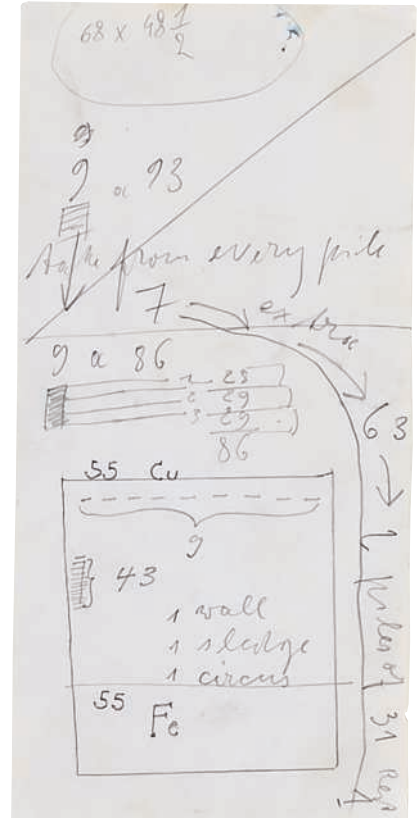 68 x 48 1/2
9
9 a 93
take from every pile
7
extra
63
9 a 86
1 28
2 29
3 29
86
55 Cu
9
43
1 wall
1 sledge
1 circus
55 Fe
2 piles of 31